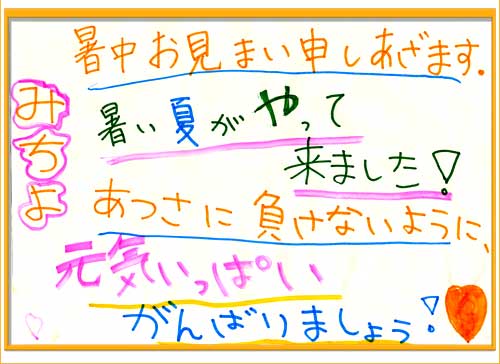 暑中お見まい申しあげます.
暑い夏がやって
来ました!
あつさに負けないように、
元気いっぱい
がんばりましょう!
みちよ